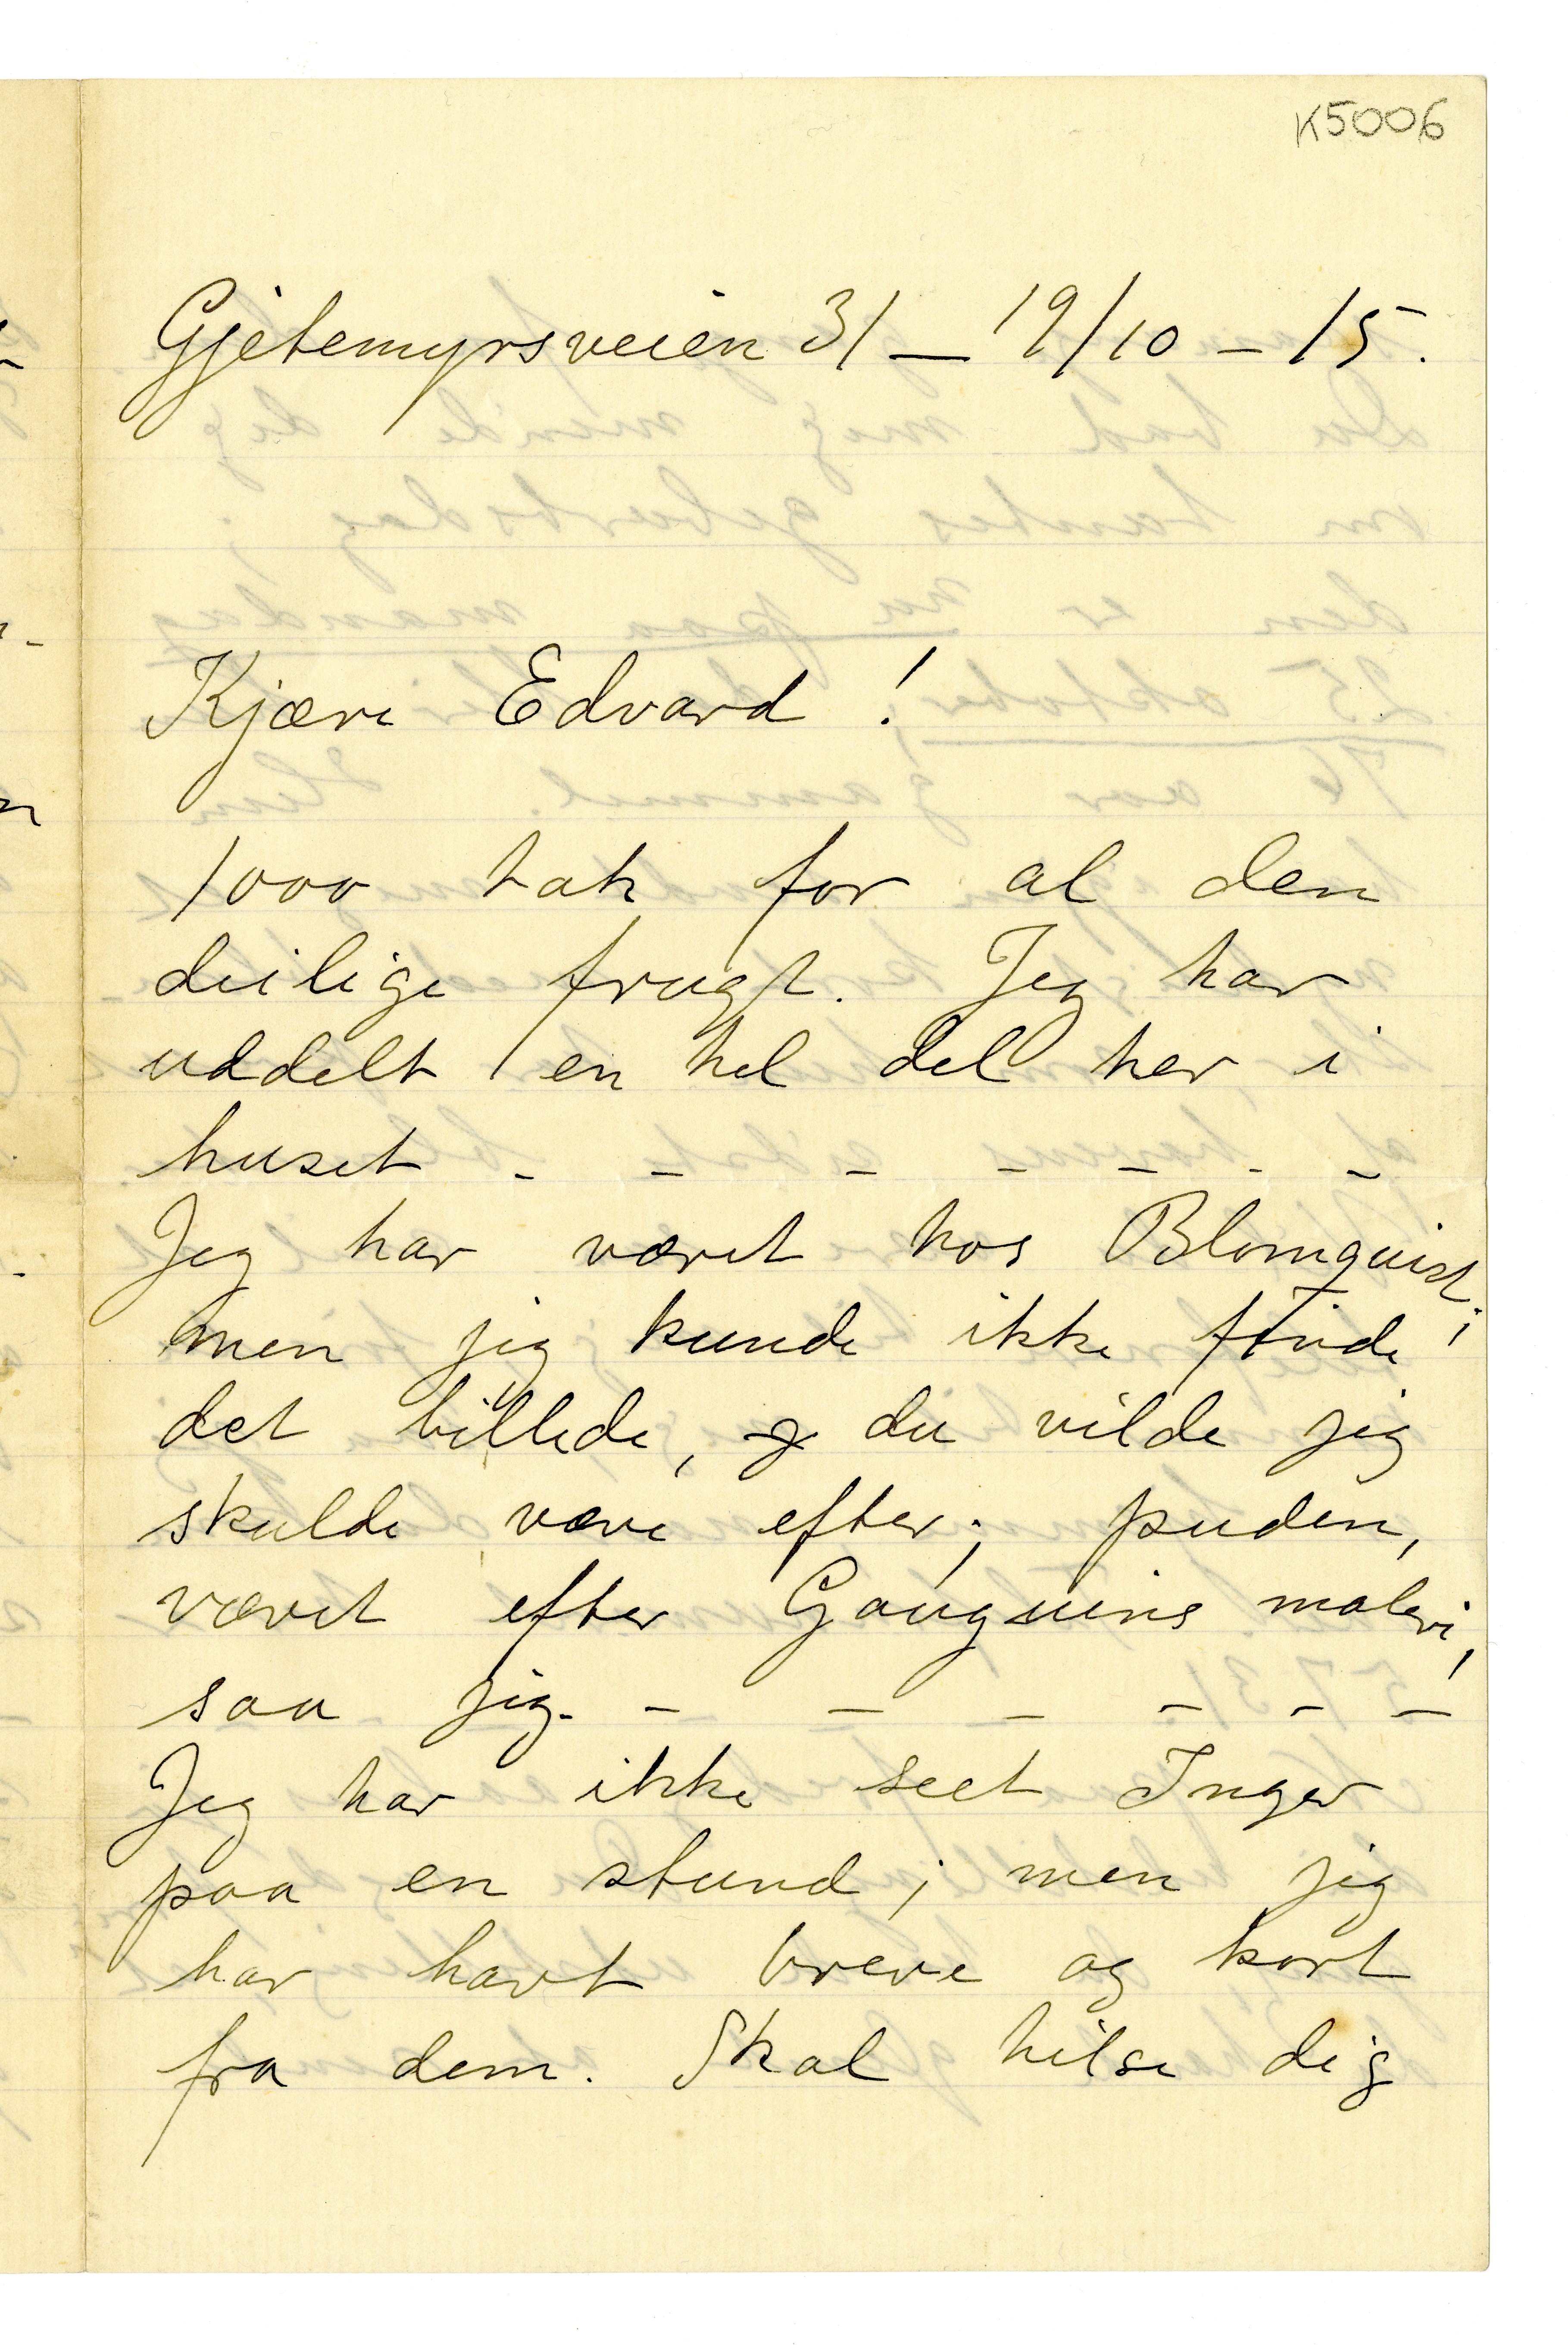 K5006
Gjetemyrsveien 31 — 19/10 – 15.
Kjære Edvard !
1000 tak for al den
deilige frugt. Jeg har
uddelt en hel del her i
huset - – – – – - –
Jeg har været hos Blomquist;
men jeg kunde ikke finde
det billede, du vilde jeg
skulde væve efter; puden,
vævet efter Gauguins maleri,
saa jeg. – – – – – –
Jeg har ikke seet Inger
paa en stund; men jeg
har havt breve og kort
fra dem. Skal hilse dig